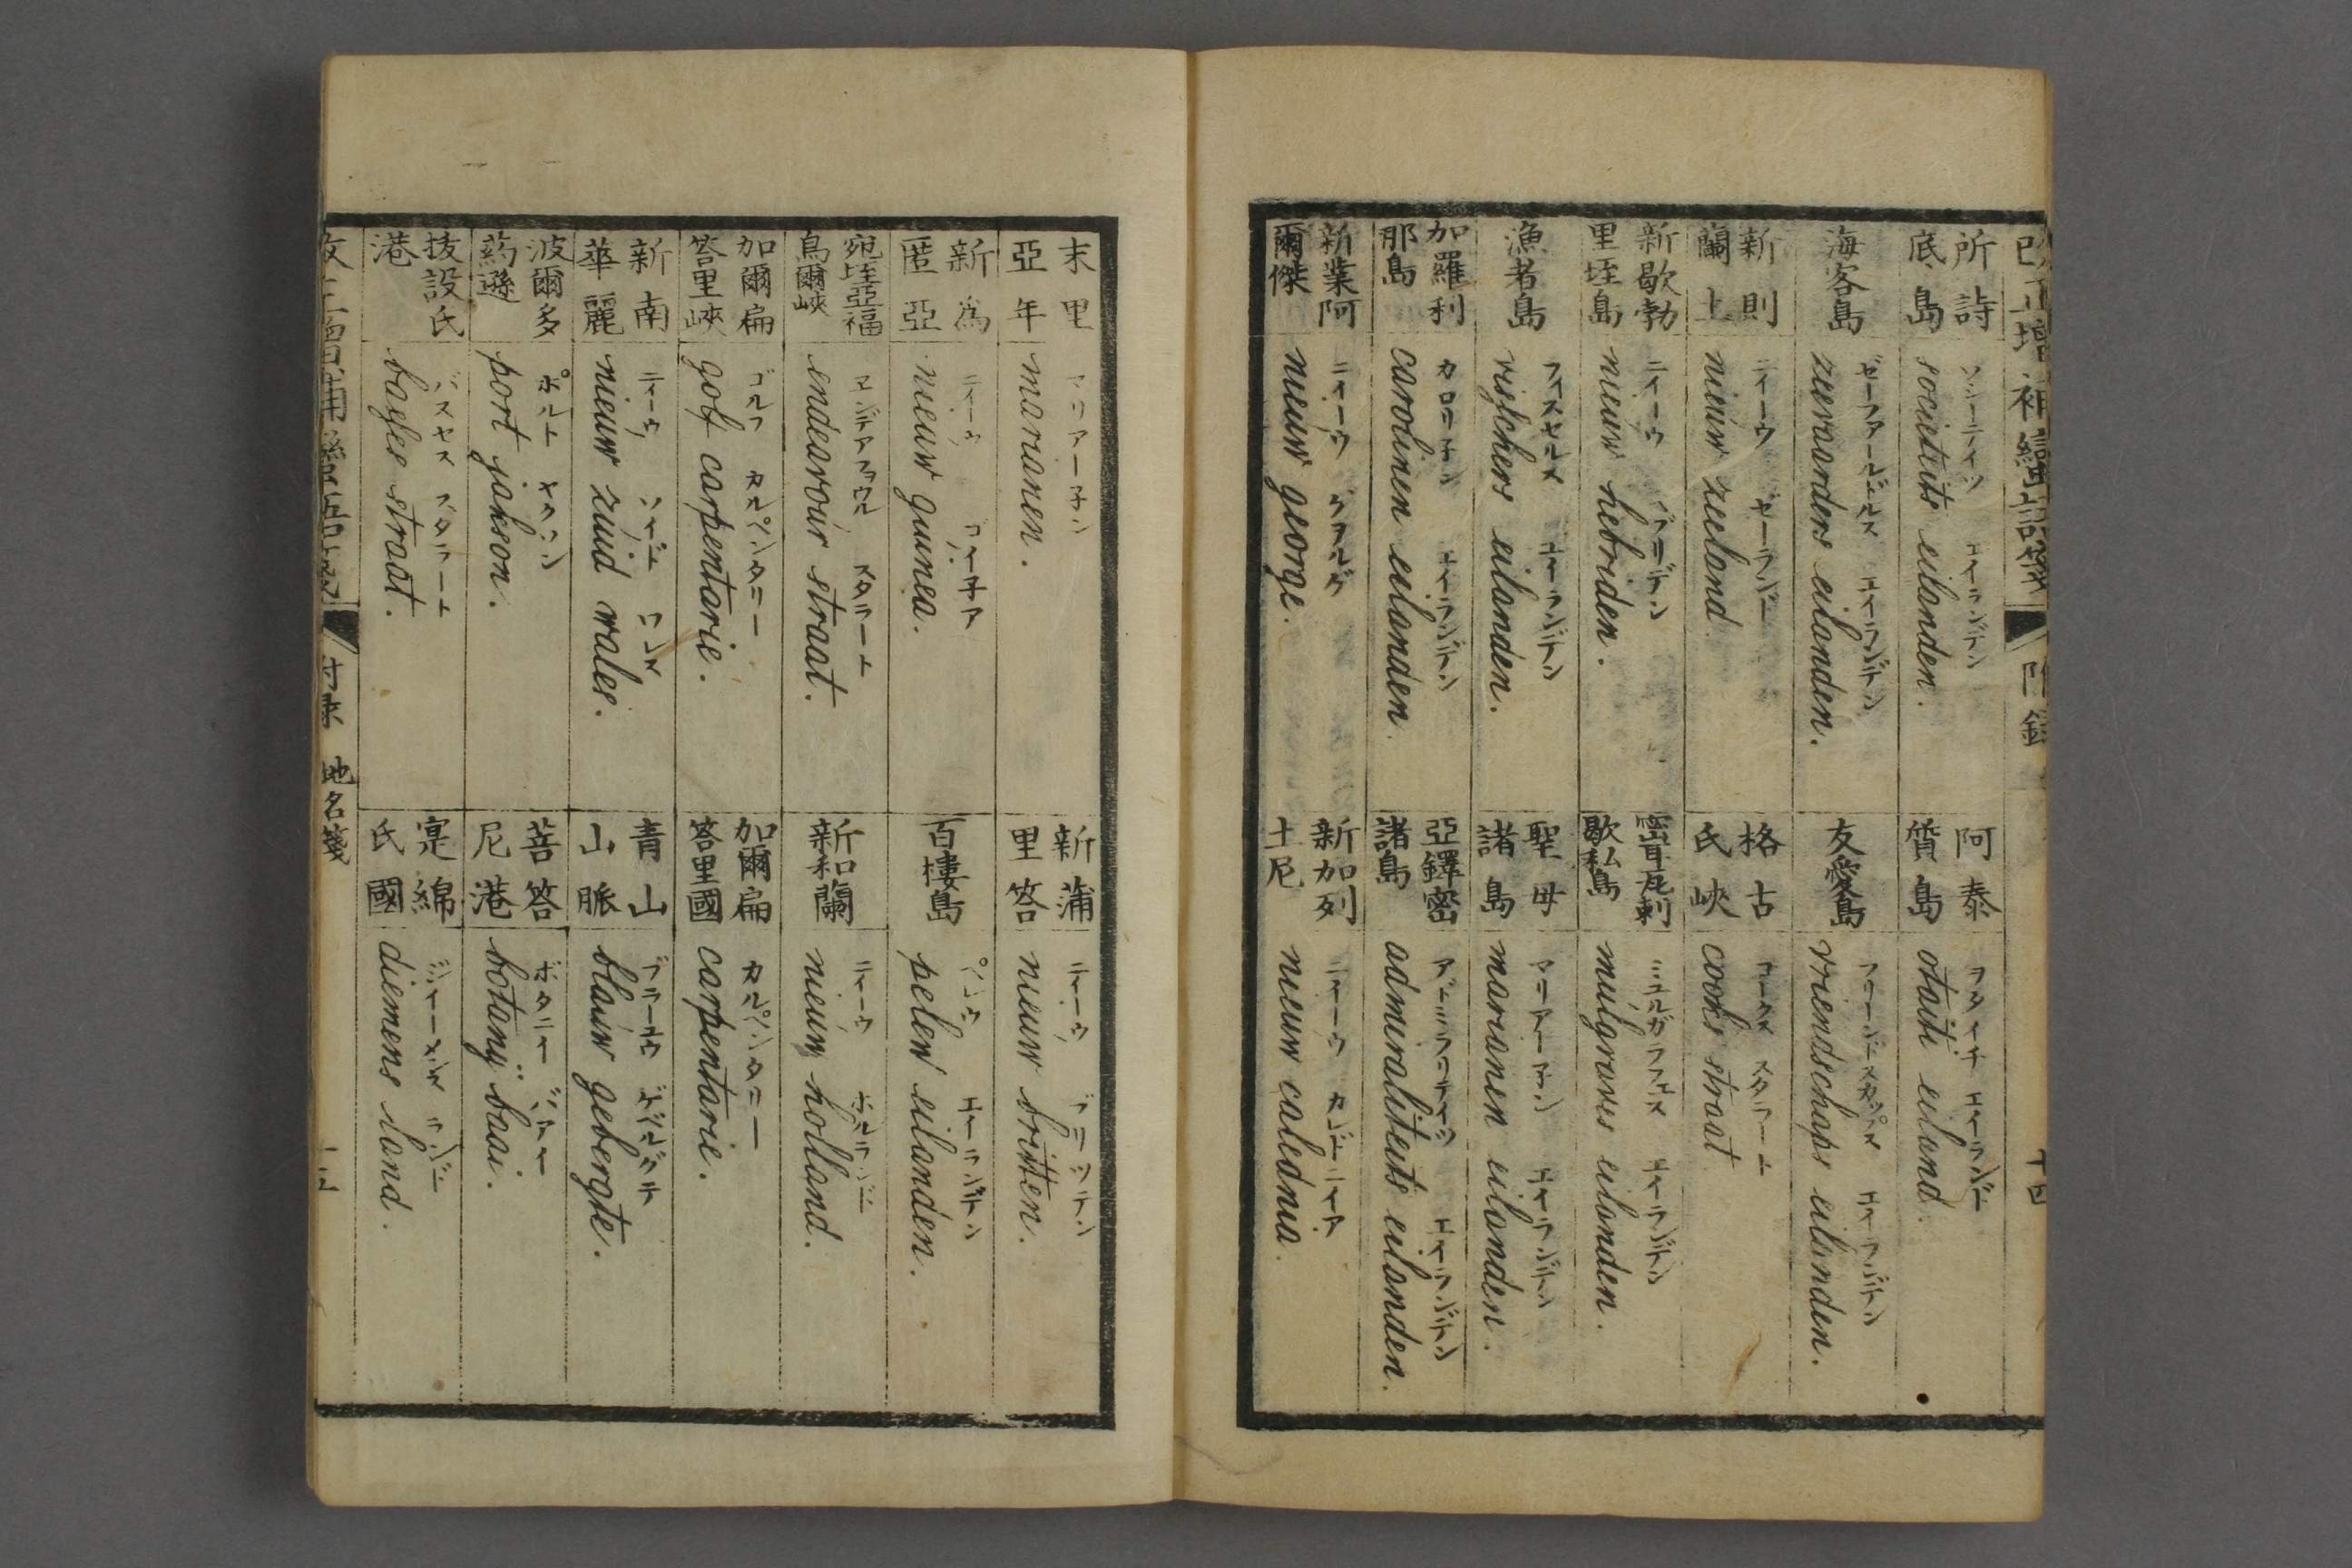 改正増補蛮語箋
附録
十四
所詩底島
ソシーテイツ エイランデン
societeits eilanden.
海客島
ゼーファールデルス エイランデン
zeevaarders eilanden.
新則蘭土
ニイーウ ゼーランド
nieuw zeeland.
新歇勃里垤島
ニイーウ ヘブリデン
nieuw hebriden.
漁者島
フィスセルス エイランデン
visschers eilanden.
加羅利那島
カロリ子ン エイランデン
carolinen eilanden.
新業阿爾傑
ニイーウ ゲヲルゲ
nieuw george.
阿泰質島
ヲタイチ エイランド
otaiti eiland.
友愛島
フリーンドスカップス エイランデン
vriendschaps eilanden.
格古氏峽
コークス スタラート
cooks straat.
歇私島
ミュルガラフェス エイランデン
mulgraves eilanden.
聖母諸島
マリアー子ン エイランデン
marianen eilanden.
亞鐸密諸島
アドミラリテイツ エイランデン
admiraliteits eilanden.
新加列土尼
ニイーウ カレドニイア
nieuw calednia.
末里亞年
マリアー子ン
marianen.
新為匿亞
ニイーウ ゴイ子ア
nieuw guinea.
宛垤亞福鳥爾峽
エンデアフヲウル スタラート
endeavour straat.
加爾扁答里峽
ゴルフ カルペンタリー
golf carpentarie.
新南華麗
ニイーウ ソイド ワレス
nieuw zuid wales.
波爾多葯遜
ポルト ヤクソン
port jakson.
抜設氏港
バスセス スタラート
basses straat.
新蒲里答
ニイーウ ブリッテン
nieuw britten.
百樓島
ペレウ エイランデン
pelew eilanden.
新和蘭
ニイーウ ホルランド
nieuw holland.
加爾扁答里國
カルペンタリー
carpentarie.
青山山脈
ブラーユウ ゲベルグテ
blauw gebergte.
菩答尼港
ボタニイ バアイ
botanÿ baai.
寔綿氏國
ジイーメンス ランド
diemens land.
改正増補蛮語箋
附录 地名箋
十五